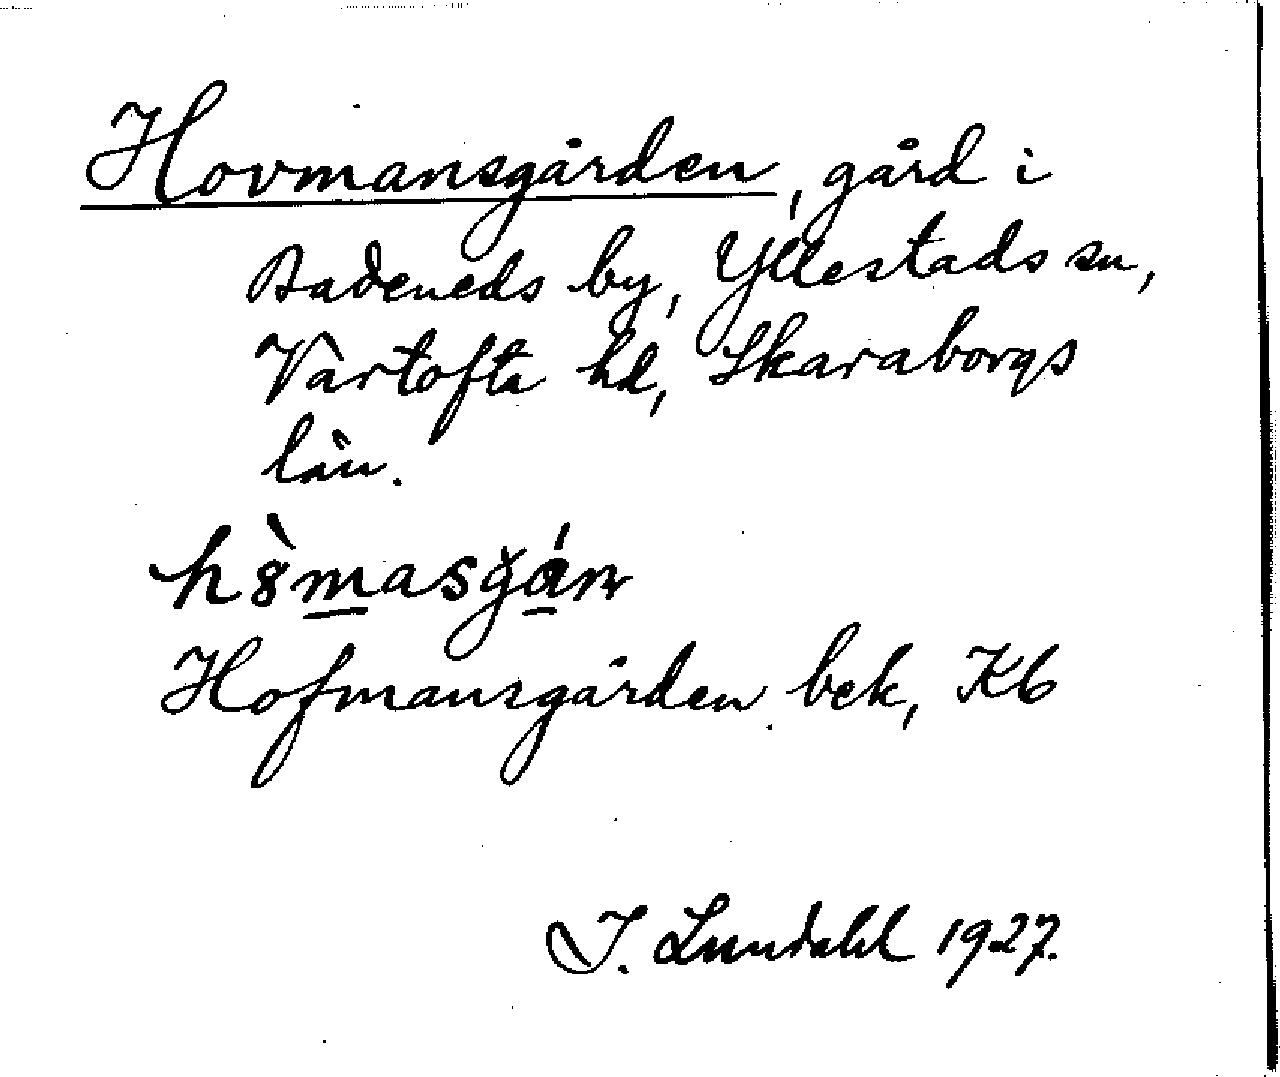 Hovmansgården, gård i
Badeneds by, Yllestads sn,
Vartofta hd, Skaraborgs
län.
Hofmansgården bek, Kb
I. Lundahl 1927.